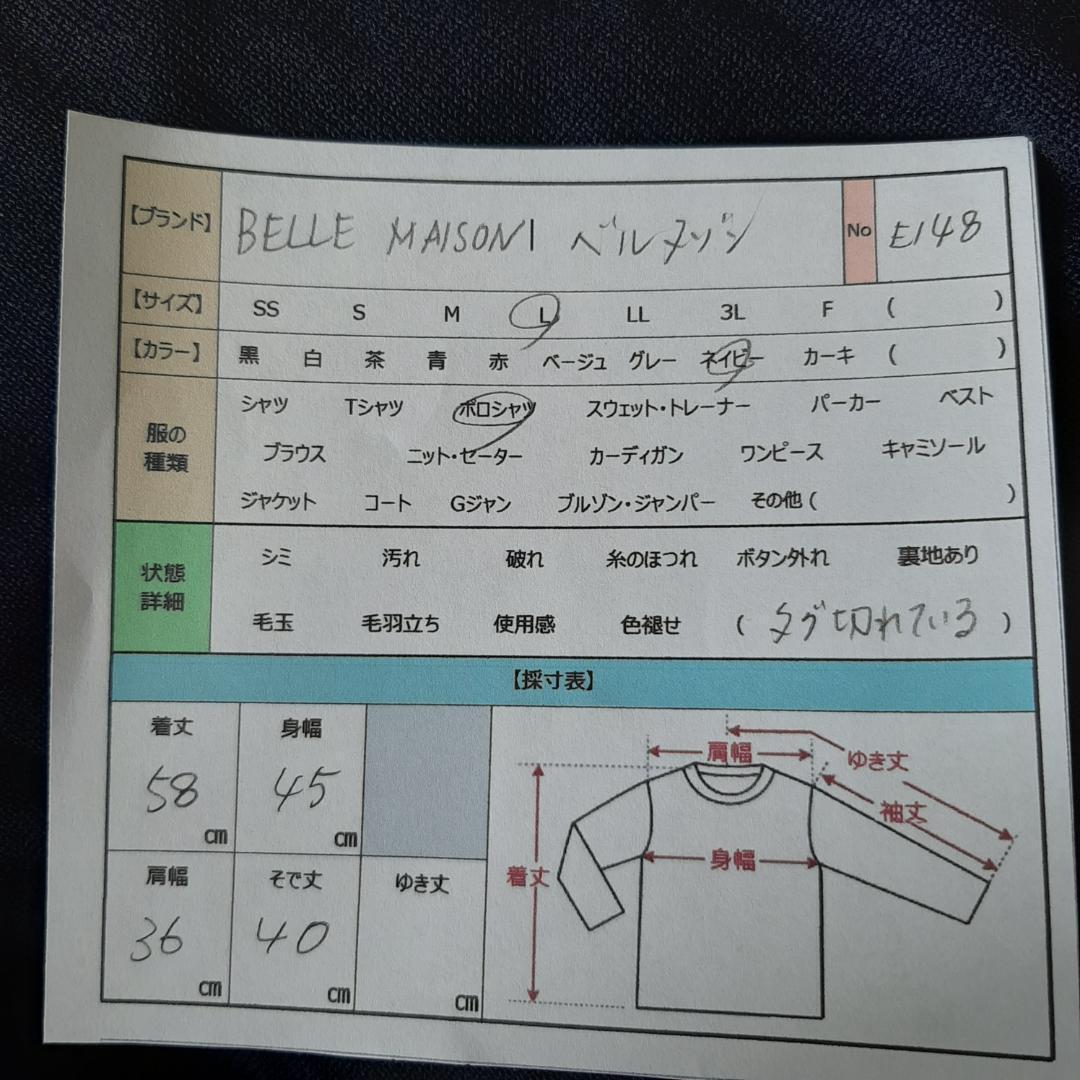 【ブランド】 BELLE MAISON ベルメゾン No E148
【サイズ】 SS S M L LL 3L F ( )
【カラー】 黒 白 茶 青 赤 ベージュ グレー ネイビー カーキ ( )
服の種類
シャツ Tシャツ ポロシャツ スウェット・トレーナー パーカー ベスト
ブラウス ニット・セーター カーディガン ワンピース キャミソール
ジャケット コート Gジャン ブルゾン・ジャンパー その他 ( )
状態詳細
シミ 汚れ 破れ 糸のほつれ ボタン外れ 裏地あり
毛玉 毛羽立ち 使用感 色褪せ ( タグ切れている )
【採寸表】
着丈 身幅
58 cm 45 cm
肩幅 そで丈 ゆき丈
36 cm 40 cm cm
肩幅 ゆき丈
袖丈
身幅
着丈